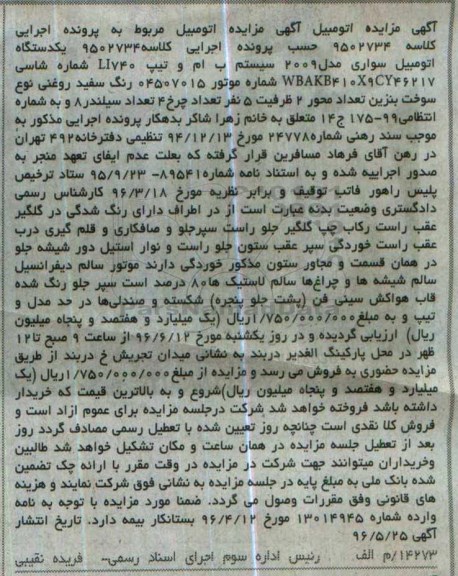 آگهی مزایده اتومبیل آگهی مزایده اتومبیل مربوط به پرونده اجرایی
کلاسه ۹۵۰۲۷۳۴ حسب پرونده اجرایی کلاسه۹۵۰۲۷۳۴ یکدستگاه
اتومبیل سواری مدل۲۰۰۹ سیستم ب ام و تیپ LI۷۴۰ شماره شاسی
WBAKB۴۱۰X۹CY۴۶۲۱۷ شماره موتور ۰۴۵۰۷۰۱۵ رنگ سفید روغنی نوع
سوخت بنزین تعداد محور ۲ ظرفیت ۵ نفر تعداد چرخ۴ تعداد سیلندر۸ و به شماره
انتظامی۹۹-۱۷۵ج۱۴ متعلق به خانم زهرا شاکر بدهکار پرونده اجرایی مذکور به
موجب سند رهنی شماره۲۴۷۷۸ مورخ ۹۴/۱۲/۱۳ تنظیمی دفترخانه۴۹۲ تهران
در رهن آقای فرهاد مسافرین قرار گرفته که بعلت عدم ایفای تعهد منجر به
صدور اجراییه شده و به استناد نامه شماره۸۹۵۴۱- ۹۵/۹/۲۳ ستاد ترخیص
پلیس راهور فاتب توقیف و برابر نظریه مورخ ۹۶/۳/۱۸ کارشناس رسمی
دادگستری وضعیت بدنه عبارت است از در اطراف دارای رنگ شدگی در گلگیر
عقب راست رکاب چپ گلگیر جلو راست سپرجلو و صافکاری و قلم گیری درب
عقب راست خوردگی سپر عقب ستون جلو راست و نوار استیل دور شیشه جلو
در همان قسمت و مجاور ستون مذکور خوردگی دارند موتور سالم دیفرانسیل
سالم شیشه ها و چراغها سالم لاستیک ها۸۰ درصد است سپر جلو رنگ شده
قاب هواکش سینی فن (پشت جلو پنجره) شکسته و صندلی‌ها در حد مدل و
تیپ و به مبلغ۱/۷۵۰/۰۰۰/۰۰۰ریال (یک میلیارد و هفتصد و پنجاه میلیون
ریال) ارزیابی گردیده و در روز یکشنبه مورخ ۹۶/۶/۱۲ از ساعت ۹ صبح تا۱۲
ظهر در محل پارکینگ الغدیر دربند به نشانی میدان تجریش خ دربند از طریق
مزایده حضوری به فروش می رسد و مزایده از مبلغ۱/۷۵۰/۰۰۰/۰۰۰ریال (یک
میلیارد و هفتصد و پنجاه میلیون ریال)شروع و به بالاترین قیمت که خریدار
داشته باشد فروخته خواهد شد شرکت درجلسه مزایده برای عموم ازاد است و
فروش کلا نقدی است چنانچه روز تعیین شده با تعطیل رسمی مصادف گردد روز
بعد از تعطیل جلسه مزایده در همان ساعت و مکان تشکیل خواهد شد طالبین
وخریداران میتوانند جهت شرکت در مزایده در وقت مقرر با ارائه چک تضمین
شده بانک ملی به مبلغ پایه در جلسه مزایده به نشانی فوق شرکت نمایند و هزینه
های قانونی وفق مقررات وصول می گردد. ضمنا مورد مزایده با توجه به نامه
وارده شماره ۱۳۰۱۴۹۴۵ مورخ ۹۶/۴/۱۲ بستانکار بیمه دارد. تاریخ انتشار
آگهی ۹۶/۵/۲۵
۱۴۲۷۳/م الف رئیس اداره سوم اجرای اسناد رسمی- فریده نقیبی